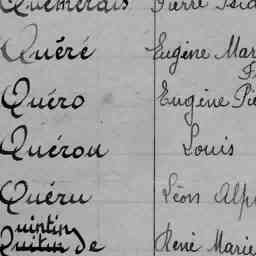 Quémerais Pierre
Quéré Eugène Mar
Quéro Eugène Pie
Quérou Louis
Quéru Léon Alp
Quintin
Quitin de René Marie